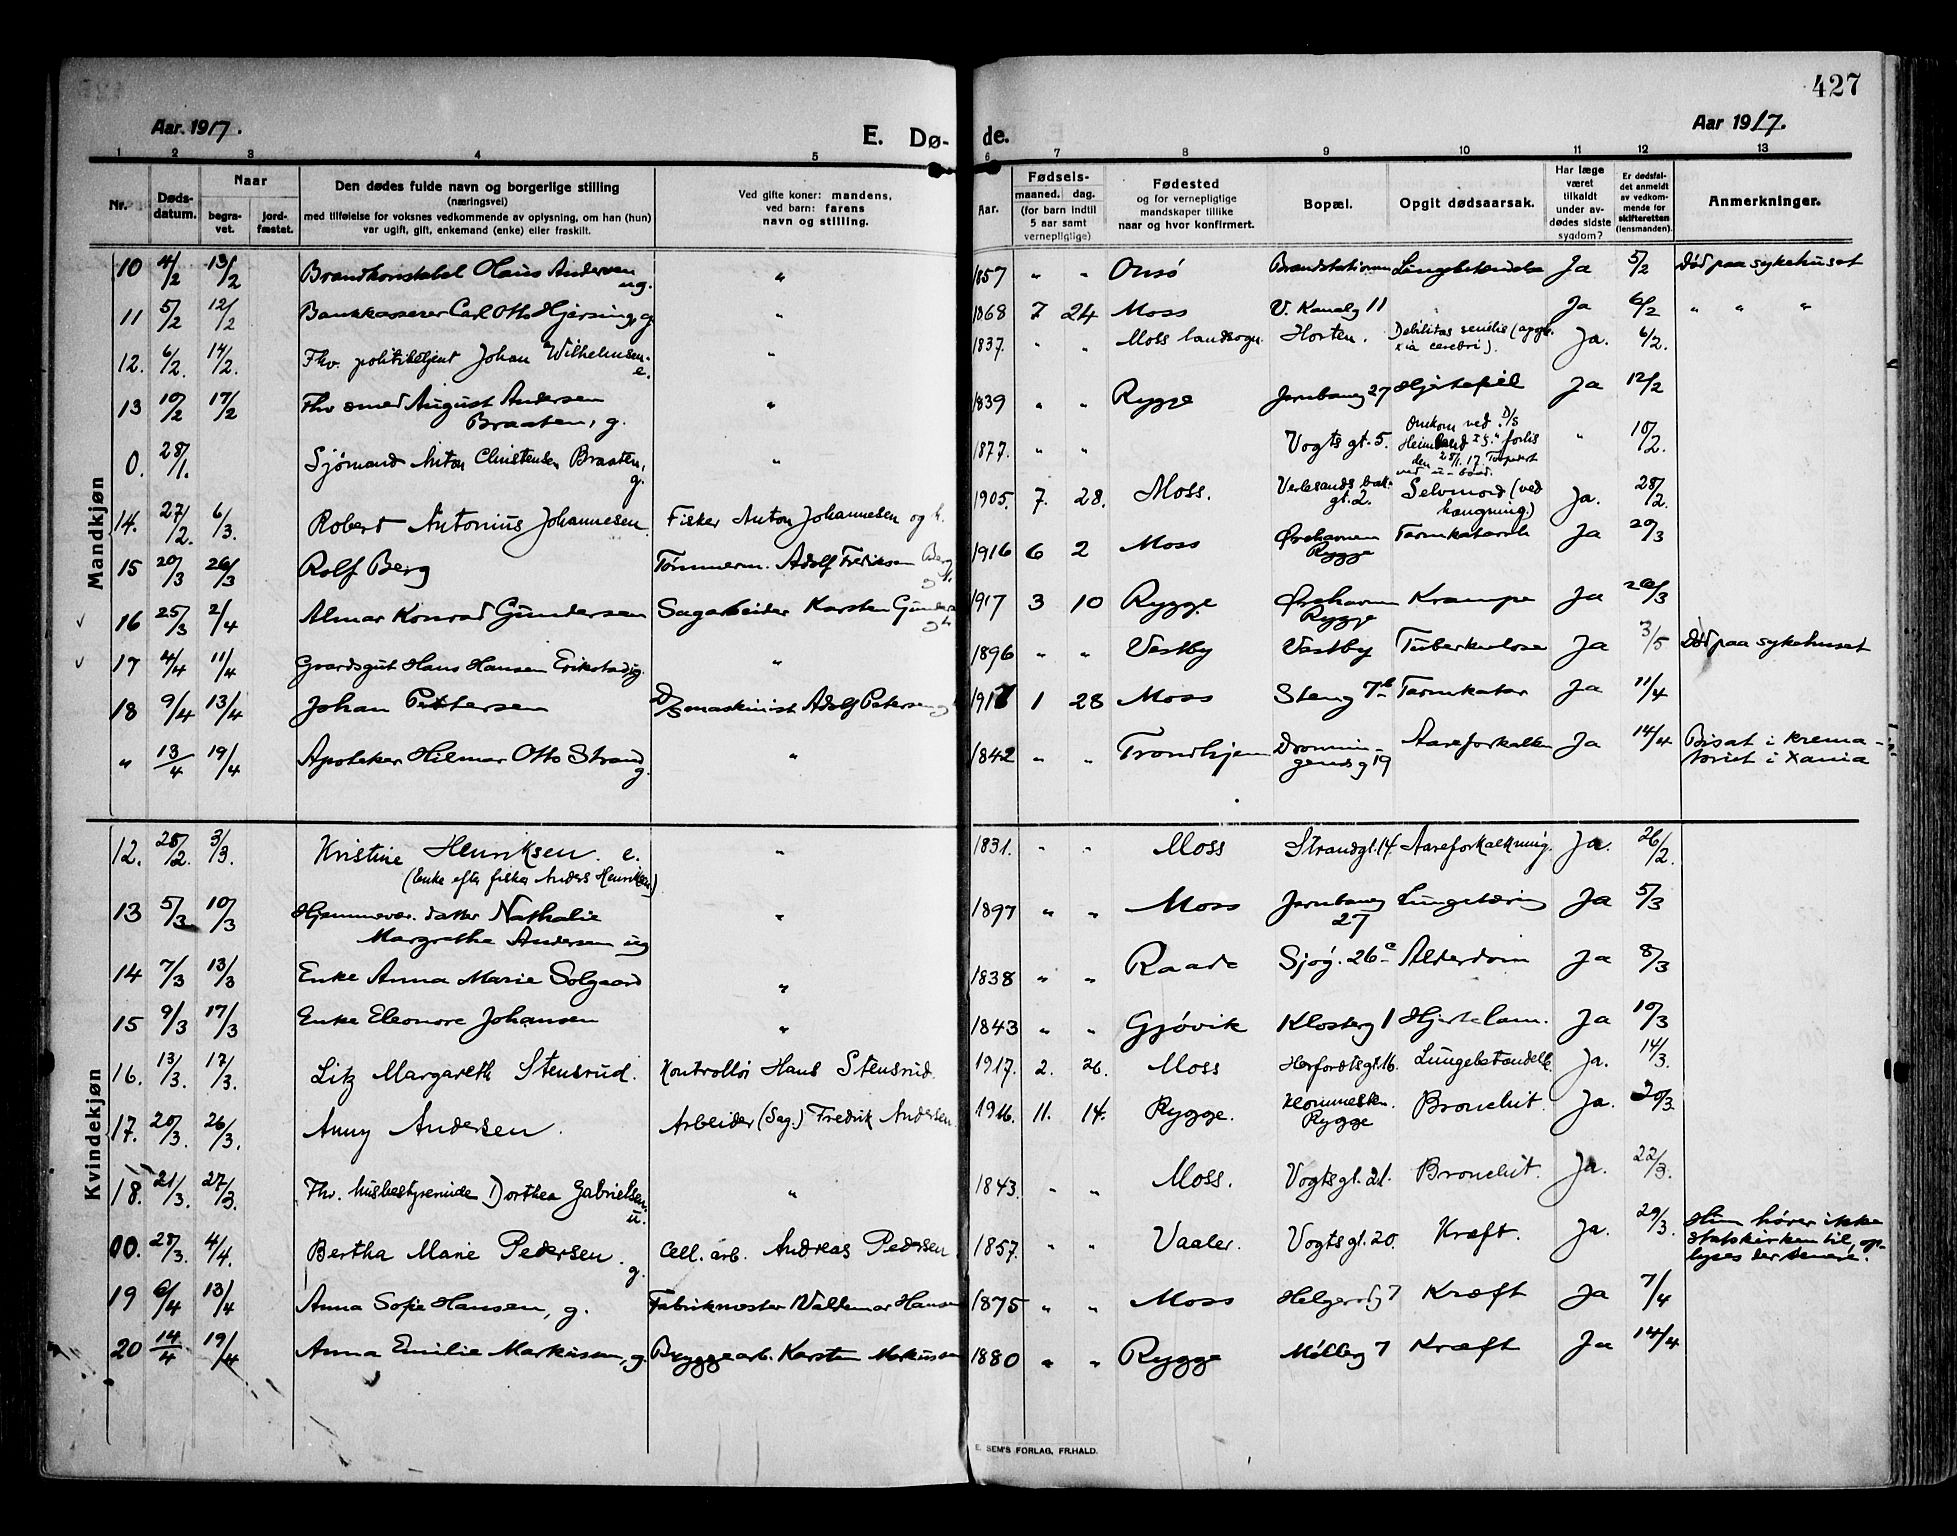 427
Aar. 1917.
E. Dø- de.
Aar 1917.
1 2 3 4 5 6 7 8 9 10 11 12 13
Nr.
Døds-
datum.
Naar
begra-
vet.
jord-
fæstet.
Den dødes fulde navn og borgerlige stilling
(næringsvei)
med tilføielse for voksnes vedkommende av oplysning, om han (hun)
var ugift, gift, enkemand (enke) eller fraskilt.
Ved gifte koner: mandens,
ved barn: farens
navn og stilling.
Aar.
Fødsels-
maaned. dag.
(for barn indtil
5 aar samt
vernepligtige)
Fødested
og for vernepligtige
mandskaper tillike
naar og hvor konfirmert.
Bopæl.
Opgit dødsaarsak.
Har læge
været
tilkaldt
under av-
dødes sidste
sygdom?
Er dødsfal-
det anmeldt
av vedkom-
mende for
skifteretten
(lensmanden).
Anmerkninger.
Mandkjøn
10 4/2 13/2 Brandkonstabel Hans Andersen ug. " 1857 " " Onsö Brandstationen Lungebetendelse Ja 5/2 Død paa sykehuset
11 5/2 12/2 Bankkasserer Carl Otto Hjersing, g. " 1868 7 24 Moss V. Kanalg 11 Ja 6/2 " " "
12. 6/2. 14/2. Fhv. politibetjent Johan Wilhelmsen. e. " 1837. " " Moss landsogn. Horten. Debilitas senilis (apople-
xia cerebri). Ja. 6/2.
13 10/2 17/2 Fhv smed August Andersen
Braaten, g. " 1839 " " Rygge Jernbaneg 27 Hjertefeil Ja 12/2
0. 28/1. Sjømand Anton Christensen Braaten, g. " 1877. " " Vogts gt. 5. Omkom ved D/S
forlis
den 28/1. 17. Torpedert
ved u-baad. " 10/2.
14. 27/2. 6/3. Robert Antonius Johannesen. Fisker Anton Johannesen og h. 1905. 7. 28. Moss. Verlesands bak-
gt. 2. Selvmord (ved
hængning.) Ja. 28/2.
15 20/3 26/3 Rolf Berg Tømmerm. Adolf Fredriksen Berg 1916 6 2 Moss Ørehavnen
Rygge Tarmkatarrh Ja 20/3
16 25/3 2/4 Almar Konrad Gundersen Sagarbeider Karsten Gunders 1917 3 10 Rygge Ørehavnen
Rygge Krampe Ja 26/3
17 4/4 11/4 Gaardsgut Hans Hansen Erikstad ug. " 1896 " " Vestby Vestby Tuberkulose Ja 3/5 Død paa sykehuset
18 9/4 13/4 Johan Pettersen D/S maskinist Adolf Petersen 1917 1 28 Moss Steng 7b Tarmkatar Ja 11/4
" 13/4 19/4 Apoteker Hilmar Otto Strand g. " 1842 " " Trondhjem Dronnin-
gensg 19 Aareforkalkn Ja 14/4 Bisat i krema-
toriet i Xania
Kvindekjøn
12. 25/2. 3/3. Kristine Henriksen. e.
(Enke efter fisker Anders Henriksen) " 1831. " " Moss Strandgt. 14. Aareforkalkning. Ja. 26/2.
13 5/3 10/3 Hjemmevær. datter Nathalie
Margrethe Andersen ug " 1897 " " Moss Jernbaneg
27 Lungetæring Ja 5/3
14 7/3 13/3 Enke Anna Marie Solgaard " 1838 " " Raade Sjøg. 26c Alderdom Ja 8/3
15 9/3 17/3 Enke Eleonore Johansen " 1843 " " Gjøvik Klosterg 1 Hjertelam. Ja 10/3
16. 13/3. 17/3. Litz Margareth Stensrud. Kontrollör Hans Stensrud. 1917. 2. 26. Moss Herfordtsgt. 16. Lungebetændelse Ja. 14/3.
17. 20/3. 26/3. Anny Andersen. Arbeider (Sag.) Fredrik Andersen. 1916. 11. 14. Rygge.
Rygge Bronchit. Ja. 20/3.
18. 21/3. 27/3. Fhv. husbestyrerinde Dorthea Gabrielsen. u. " 1843. " " Moss. Vogtsgt. 21. Bronchit. Ja. 22/3.
00. 28/3. 4/4. Bertha Marie Pedersen. g. Cell. arb. Andreas Pedersen 1857. " " Vaaler. Vogtsgt. 20. Kræft. Ja. 29/3. Hun hører ikke
statskirken til, op-
lyses der senere.
19 6/4 13/4 Anna Sofie Hansen, g. Fabrikmester Waldemar Hansen 1875 " " Moss Helgerødg 7 Kræft Ja 7/4
20 14/4 19/4 Anna Emilie Markussen, g. Bryggearb. Karsten Markussen 1880 " " Rygge Mölleg 7 Kræft Ja 14/4
E. SEM'S FORLAG, FR.HALD.